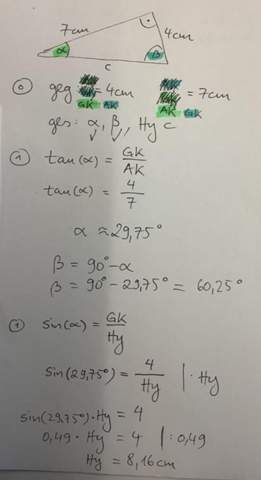 7cm
4cm
α
β
c
⓪ geg = 4cm = 7cm
GK AK AK GK
ges: α, β, Hy c
① tan(α) = GK/AK
tan(α) = 4/7
α ≈ 29,75°
β = 90° - α
β = 90° - 29,75° = 60,25°
① sin(α) = GK/Hy
sin(29,75°) = 4/Hy | · Hy
sin(29,75°) · Hy = 4
0,49 · Hy = 4 | : 0,49
Hy = 8,16cm